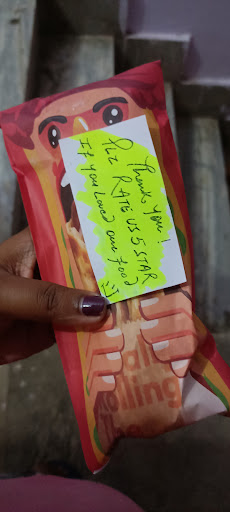 Thank you!
Plz RATE US 5 STAR
If you Loved our food
:)
rolling